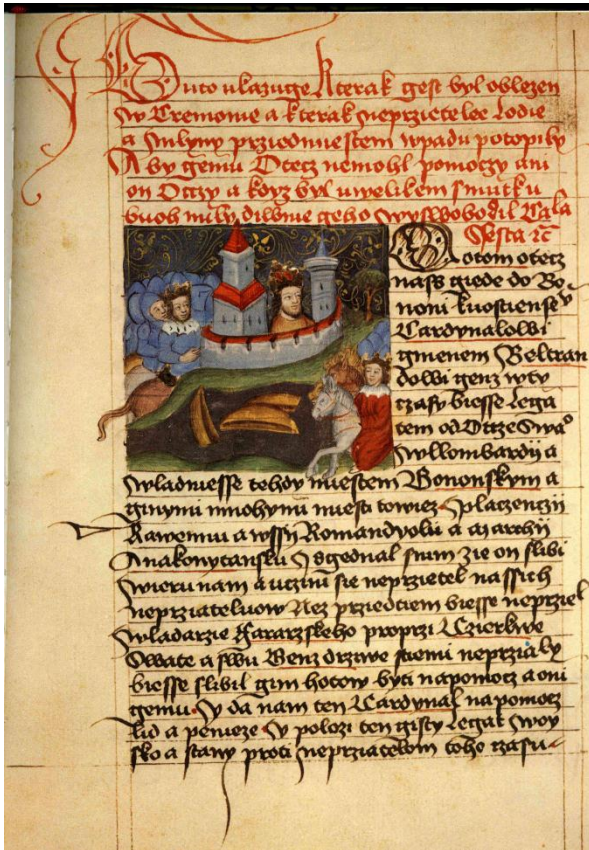 Tuto ukazuge kterak gest byl oblezen
w Cremonie a kterak neprzietelee lodie
a mlyny przied miestem wpadu potopily
A by gemu Otecz nemohl pomoczy ani
on Otczy a kdyz byl uwelikem smutku
buoh mily diwnie geho wyswobodil
Sesta
Potom otecz
nass giede do Bo
noni
Cardynalowi
gmenem Beltran
dowi genz wty
czasy biesse lega
tem od Otcze Swa
wllombardij a
wladniesse tehdy miestem Bononskym a
ginymi mnohymi miesti towiez Splaczencij
Rawennu a wssij Romandyolij a marchij
Anakonytansku Sgednal snim zie on slibi
wieru nam a uczini sie neprzietel nassich
neprziateluow Nez przied tiem biesse neprziel
wladarzie fararzskeho proprzi Czierkwe
Swate a
biesse slibil gim hotow byti napomocz a oni
gemu Y da nam ten Cardynal na pomocz
lid a penieze Y polozi ten gisty legat woy
sko a stany proti neprziatelom toho czasu